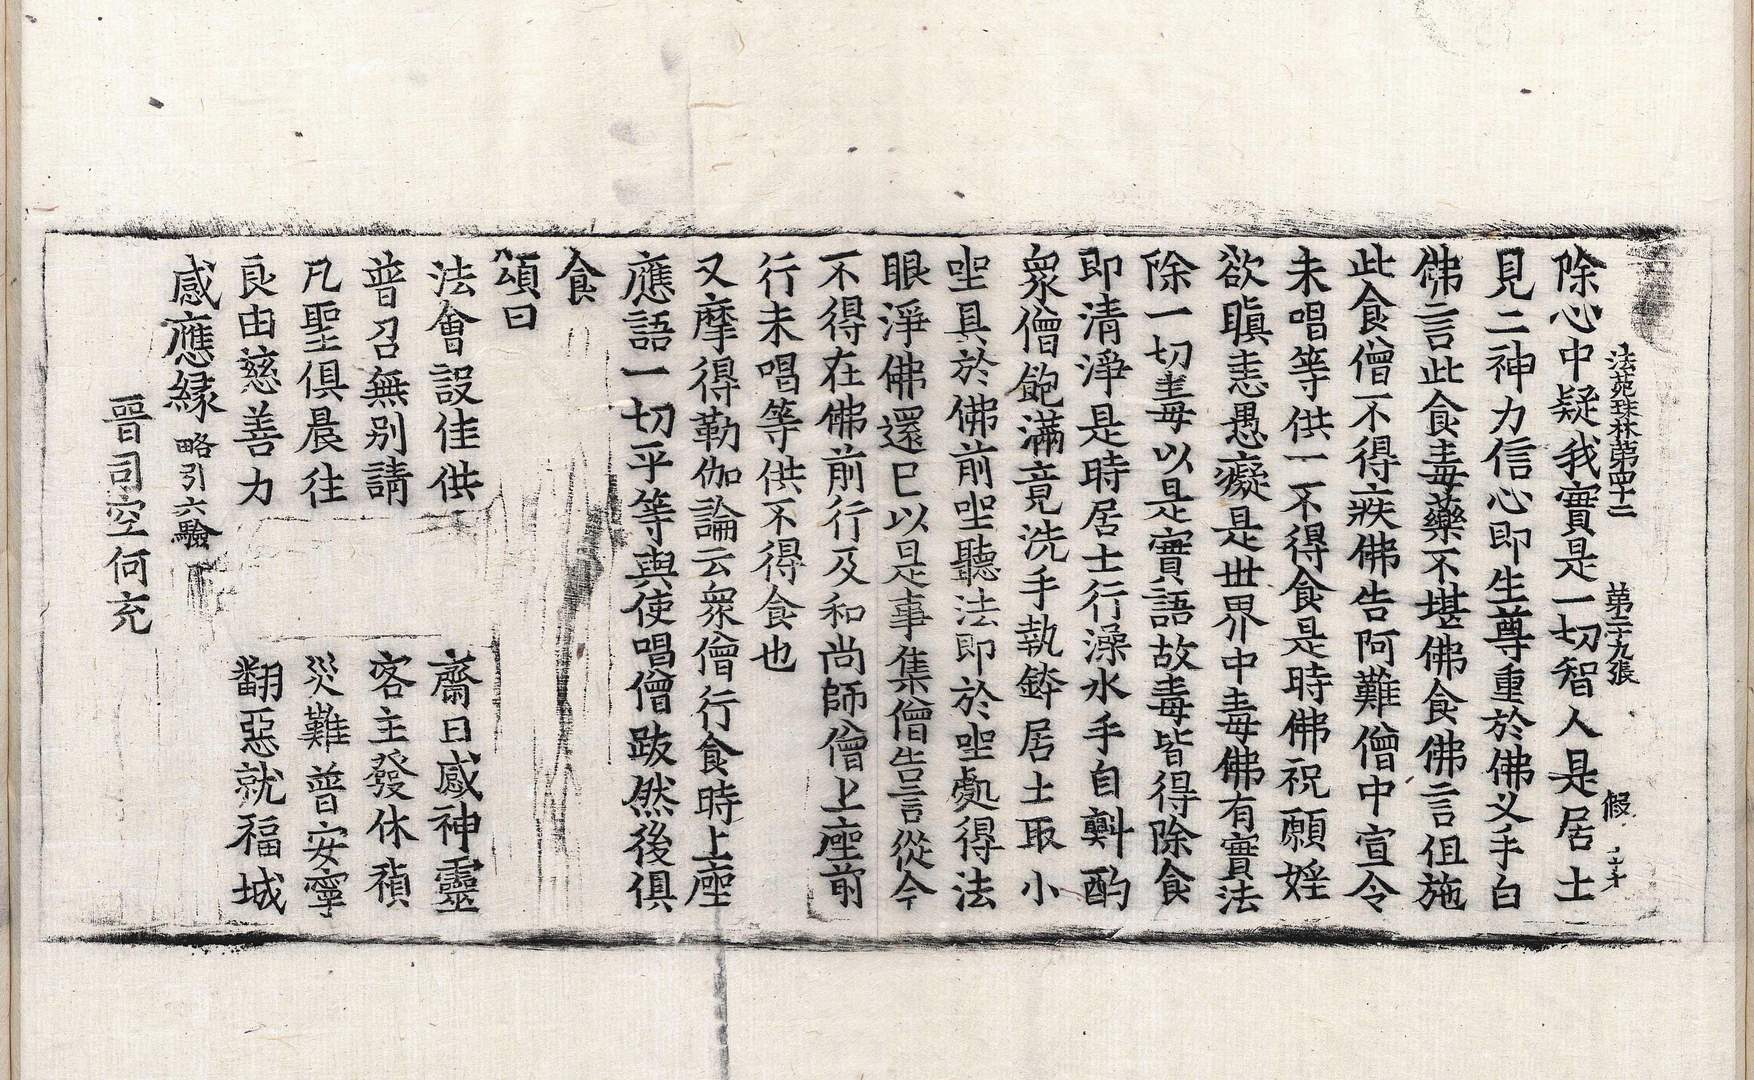 法苑珠林第四十二 第二十九張 假
除心中疑我實是一切智人是居士
見二神力信心即生尊重於佛义手白
佛言此食毒藥不堪佛食佛言但施
此食僧不得疾佛告阿難僧中宣令
未唱等供一不得食是時佛祝願婬
欲瞋恚愚癡是世界中毒佛有實法
除一切毒以是實語故毒皆得除食
即清淨是時居士行澡水手自斟酌
衆僧飽滿竟洗手執鉢居士取小
坐具於佛前坐聽法即於坐處得法
眼淨佛還已以是事集僧告言從今
不得在佛前行及和尚師僧上座前
行未唱等供不得食也
又摩得勒伽論云衆僧行食時上座
應語一切平等與使唱僧跋然後俱
食
頌曰
法會設佳供 齋日感神靈
普召無別請 客主發休禎
凡聖俱晨往 災難普安寧
良由慈善力 翻惡就福城
感應緣 略引六驗
晉司空何充